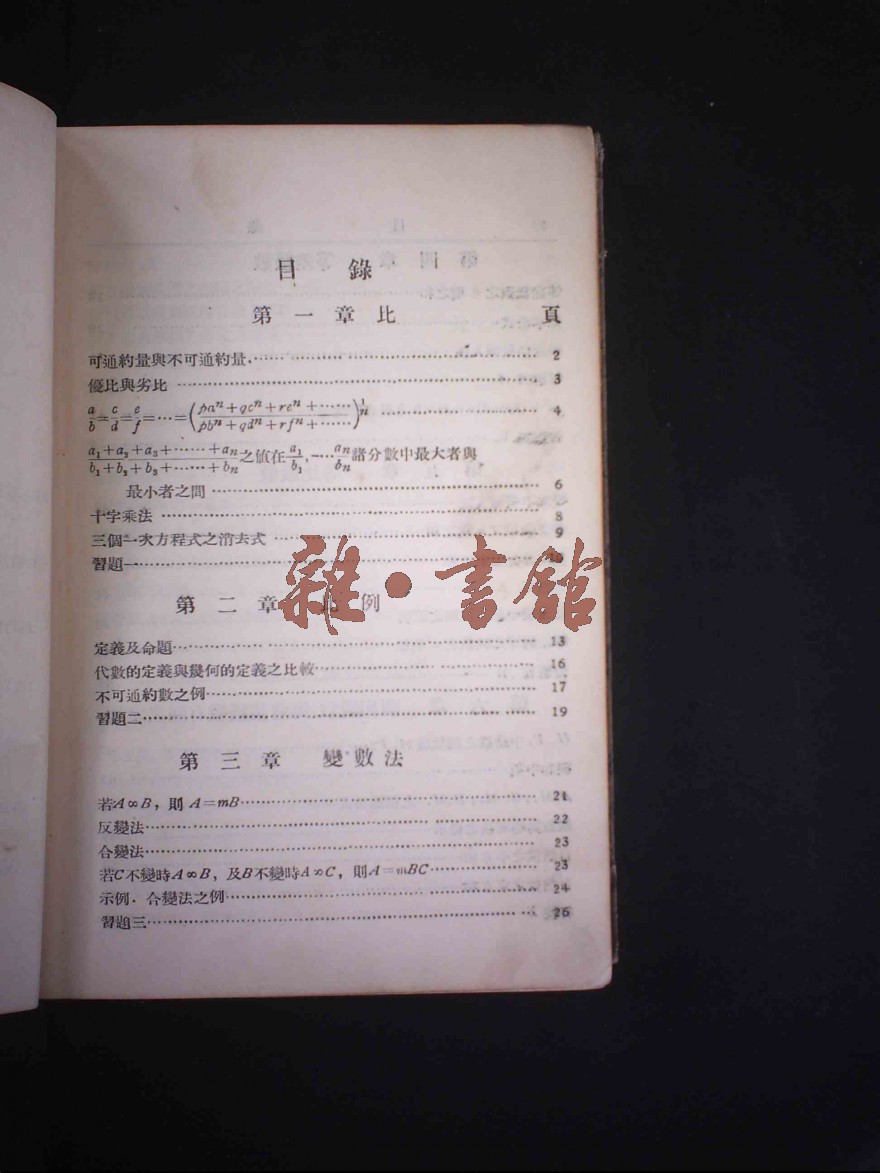 目 錄
第 一 章 比 頁
可通約量與不可通約量 2
優比與劣比 3
a/b=c/d=e/f=⋯=((paⁿ+qcⁿ+reⁿ+⋯⋯)/(pbⁿ+qdⁿ+rfⁿ+⋯⋯))^(1/n) 4
(a₁+a₂+a₃+⋯⋯+aₙ)/(b₁+b₂+b₃+⋯⋯+bₙ)之值在a₁/b₁,⋯aₙ/bₙ諸分數中最大者與
最小者之間 6
十字乘法 8
三個一次方程式之消去式 9
習題一 10
雜·書館
第 二 章 比 例
定義及命題 13
代數的定義與幾何的定義之比較 16
不可通約數之例 17
習題二 19
第 三 章 變數法
若A∝B，則 A=mB 21
反變法 22
合變法 23
若C不變時A∝B，及B不變時A∝C，則A=mBC 23
示例．合變法之例 24
習題三 26